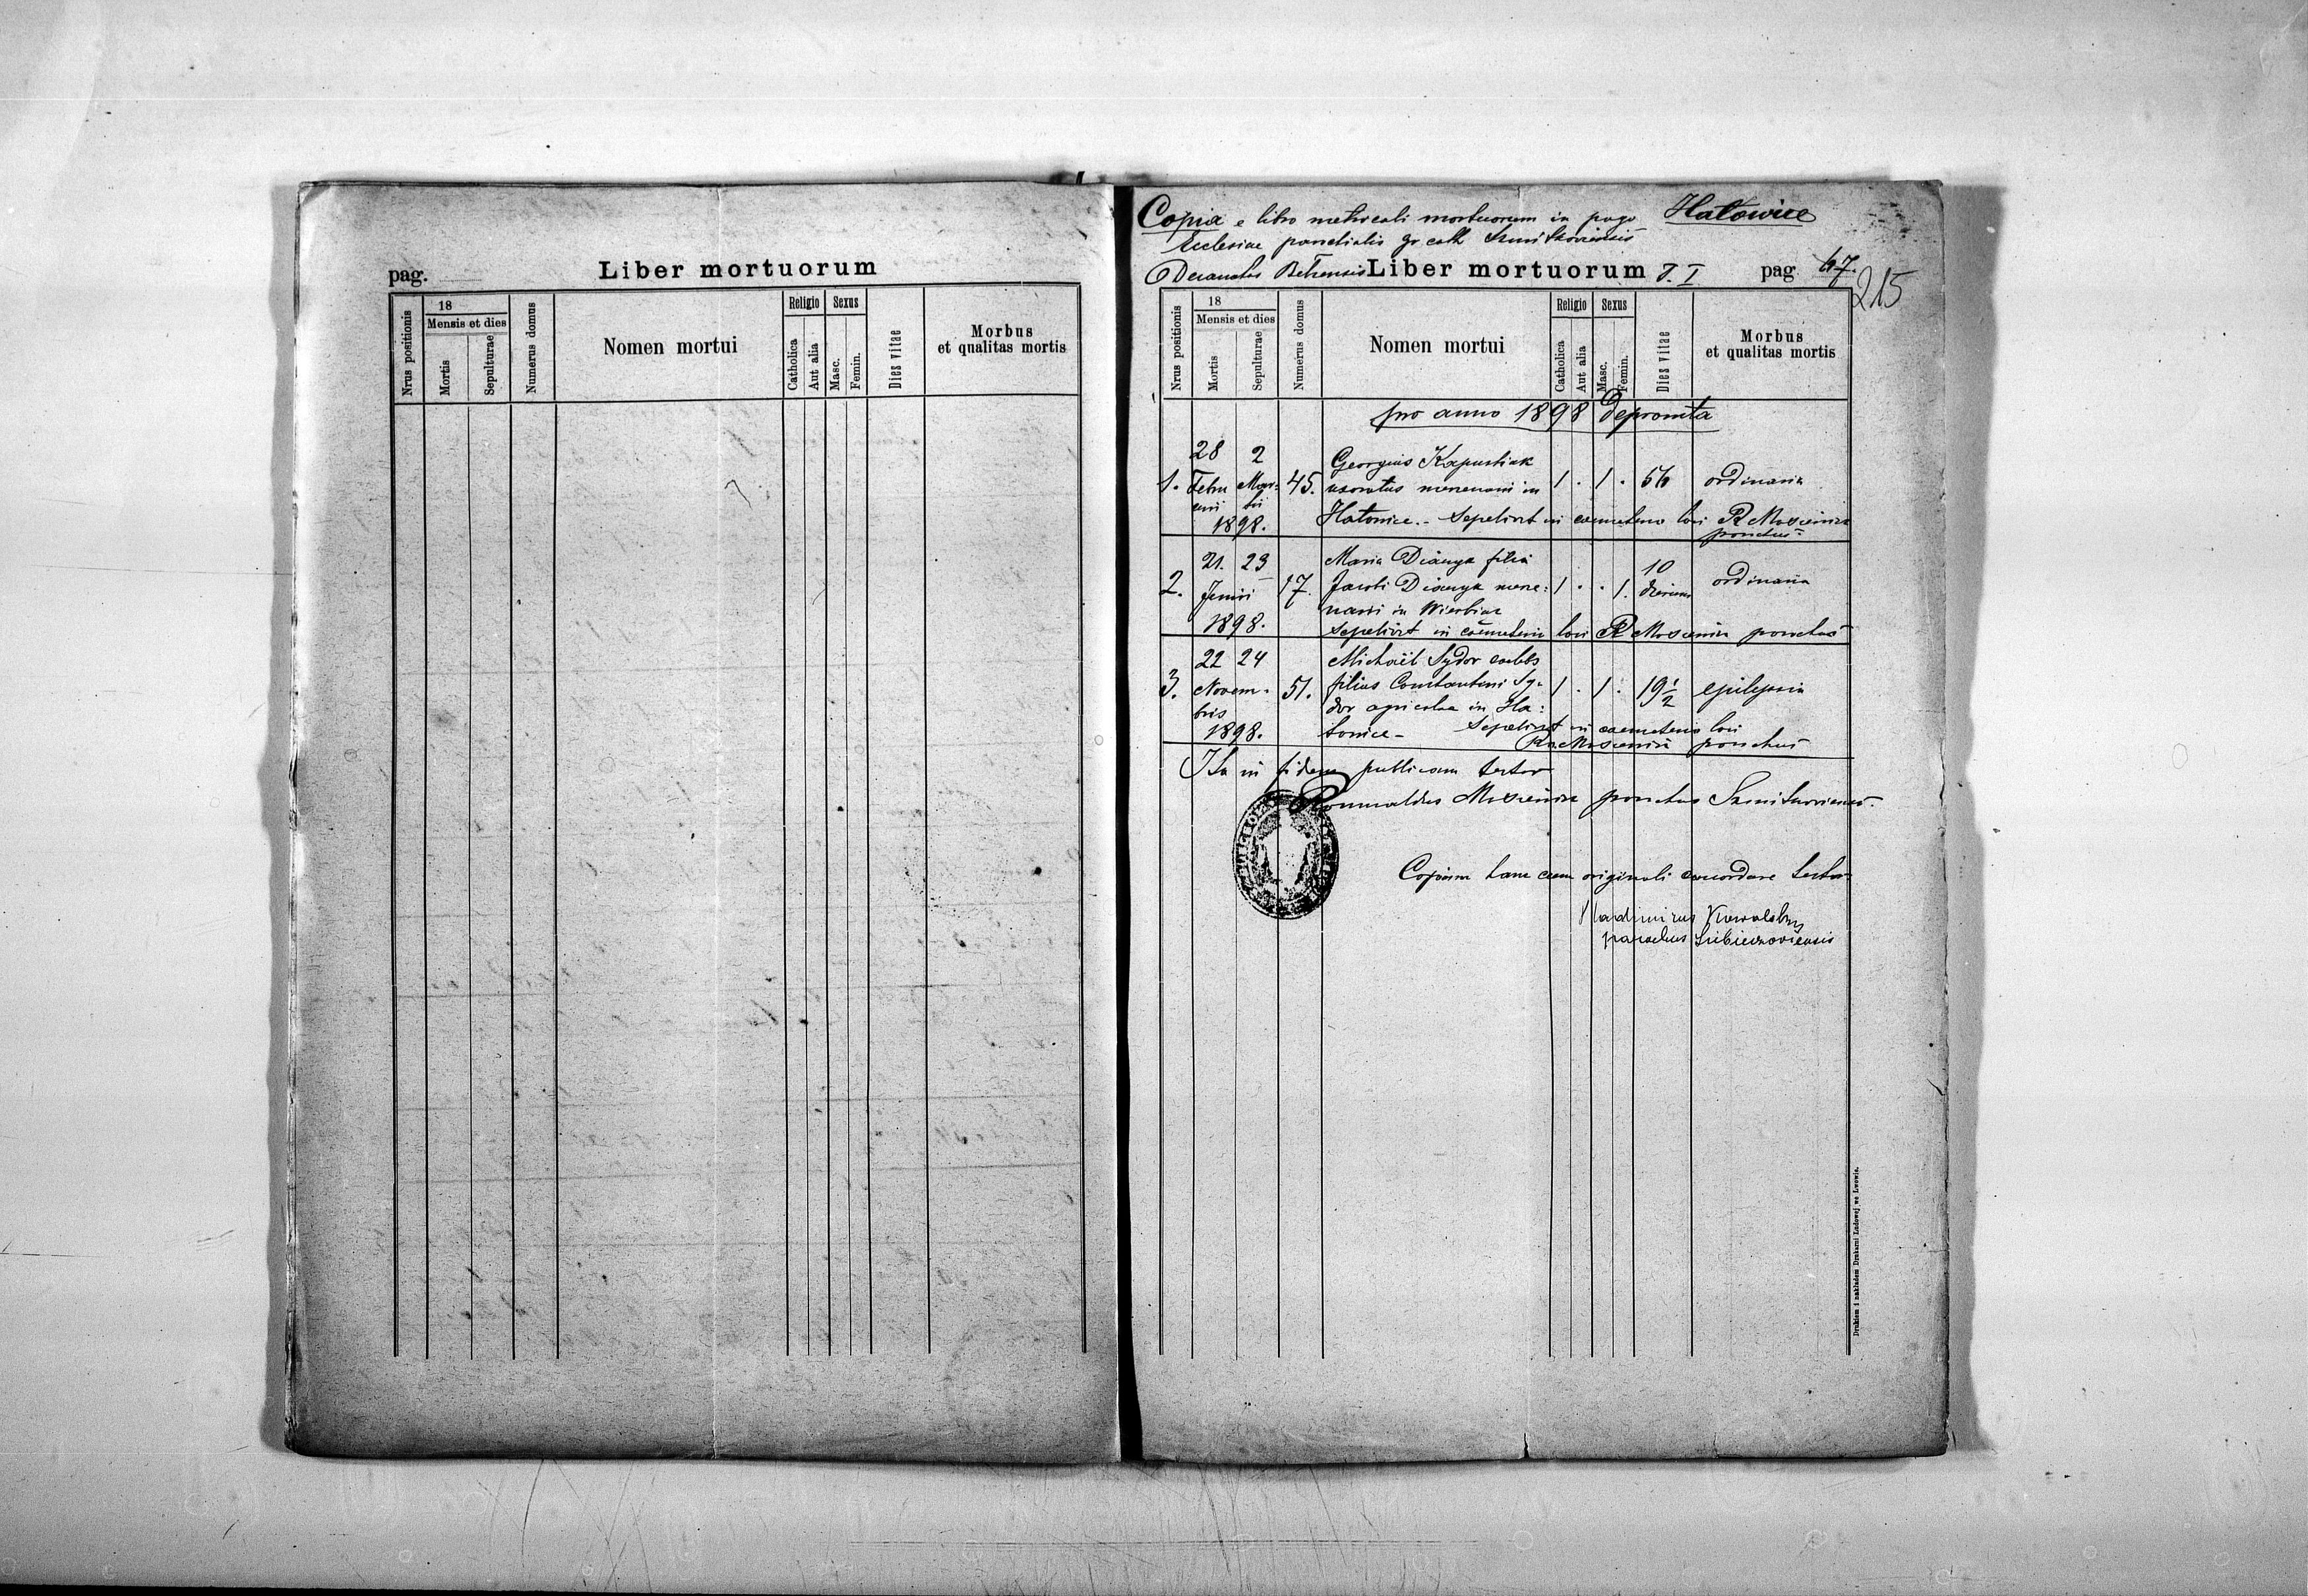 pag.
Liber mortuorum
Nrus positionis
18
Mensis et dies
Mortis
Sepulturae
Numerus domus
Nomen mortui
Religio
Catholica
Aut alia
Sexus
Masc.
Femin.
Dies vitae
Morbus
et qualitas mortis
Copia e libro metricali mortuorum in pago Hatowice
Ecclesiae parochialis gr cath
Decanatus Liber mortuorum T. I pag 67.
215
Nrus positionis
18
Mensis et dies
Mortis
Sepulturae
Numerus domus
Nomen mortui
Religio
Catholica
Aut alia
Sexus
Masc.
Femin.
Dies vitae
Morbus
et qualitas mortis
pro anno 1898 deprompta
28 2 Georgius Kapustiak
1. Febru Mar- 45. uxoratus mercenarii in 1 . 1 . 56 ordinaria
arii tii
1898. Hatowice.- Sepelivit in coemeterio loci R
parochus
21. 23 Maria filia
2. Junii 17. Jacobi merce: 1 . . 1. 10 dierum ordinaria
1898. narii in Wierbiąż
sepelivit in coemeterio loci R parochus
22 24 Michaël Sydor caelebs
3. Novem- 51. filius Constantini Sy- 1 . 1 . 19 1/2 epilepsia
bris dor agricolae in Ha:
1898. towice - Sepelivit in coemeterio loci
parochus
Ita in fidem publicam testor
Romualdus parochus
Copiam hanc cum originali concordare testor
Vladimirus Kowalskyj
parochus
Drukiem i nakładem Drukarni Ludowej we Lwowie.